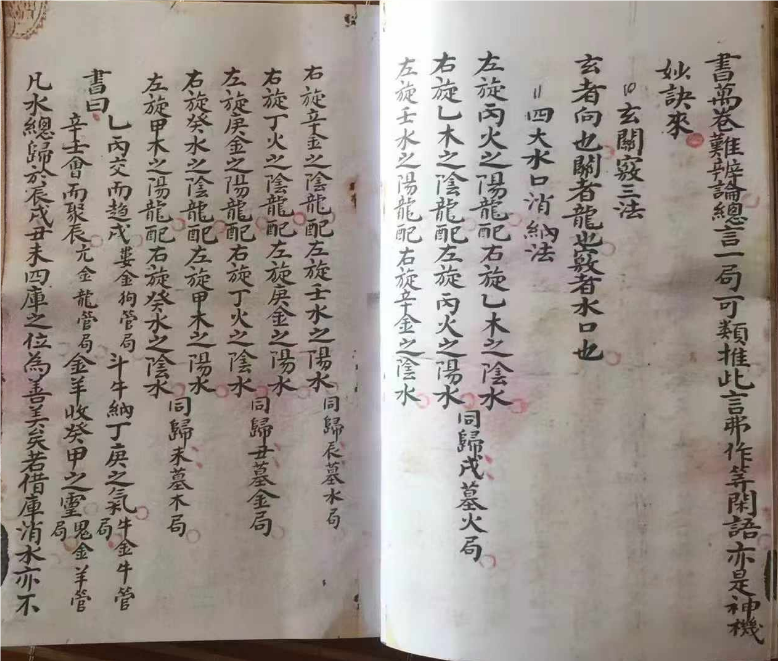 書萬卷難辨論總言一局可類推此言弗作等閑語亦是神機
妙訣來
玄關竅三法
玄者向也關者龍也竅者水口也
四大水口消納法
左旋丙火之陽龍配右旋乙木之陰水
右旋乙木之陰龍配左旋丙火之陽水
同歸戌墓火局
左旋壬水之陽龍配右旋辛金之陰水
右旋辛金之陰龍配左旋壬水之陽水
同歸辰墓水局
右旋丁火之陰龍配左旋庚金之陽水
左旋庚金之陽龍配右旋丁火之陰水
同歸丑墓金局
右旋癸水之陰龍配左旋甲木之陽水
左旋甲木之陽龍配右旋癸水之陰水
同歸未墓木局
書曰乙丙交而趋戌婁金狗管局斗牛納丁庚之氣牛金牛管局
辛壬會而聚辰亢金龍管局金羊收癸甲之靈鬼金羊管局
凡水總歸於辰戌丑未四庫之位為善美矣若借庫消水亦不